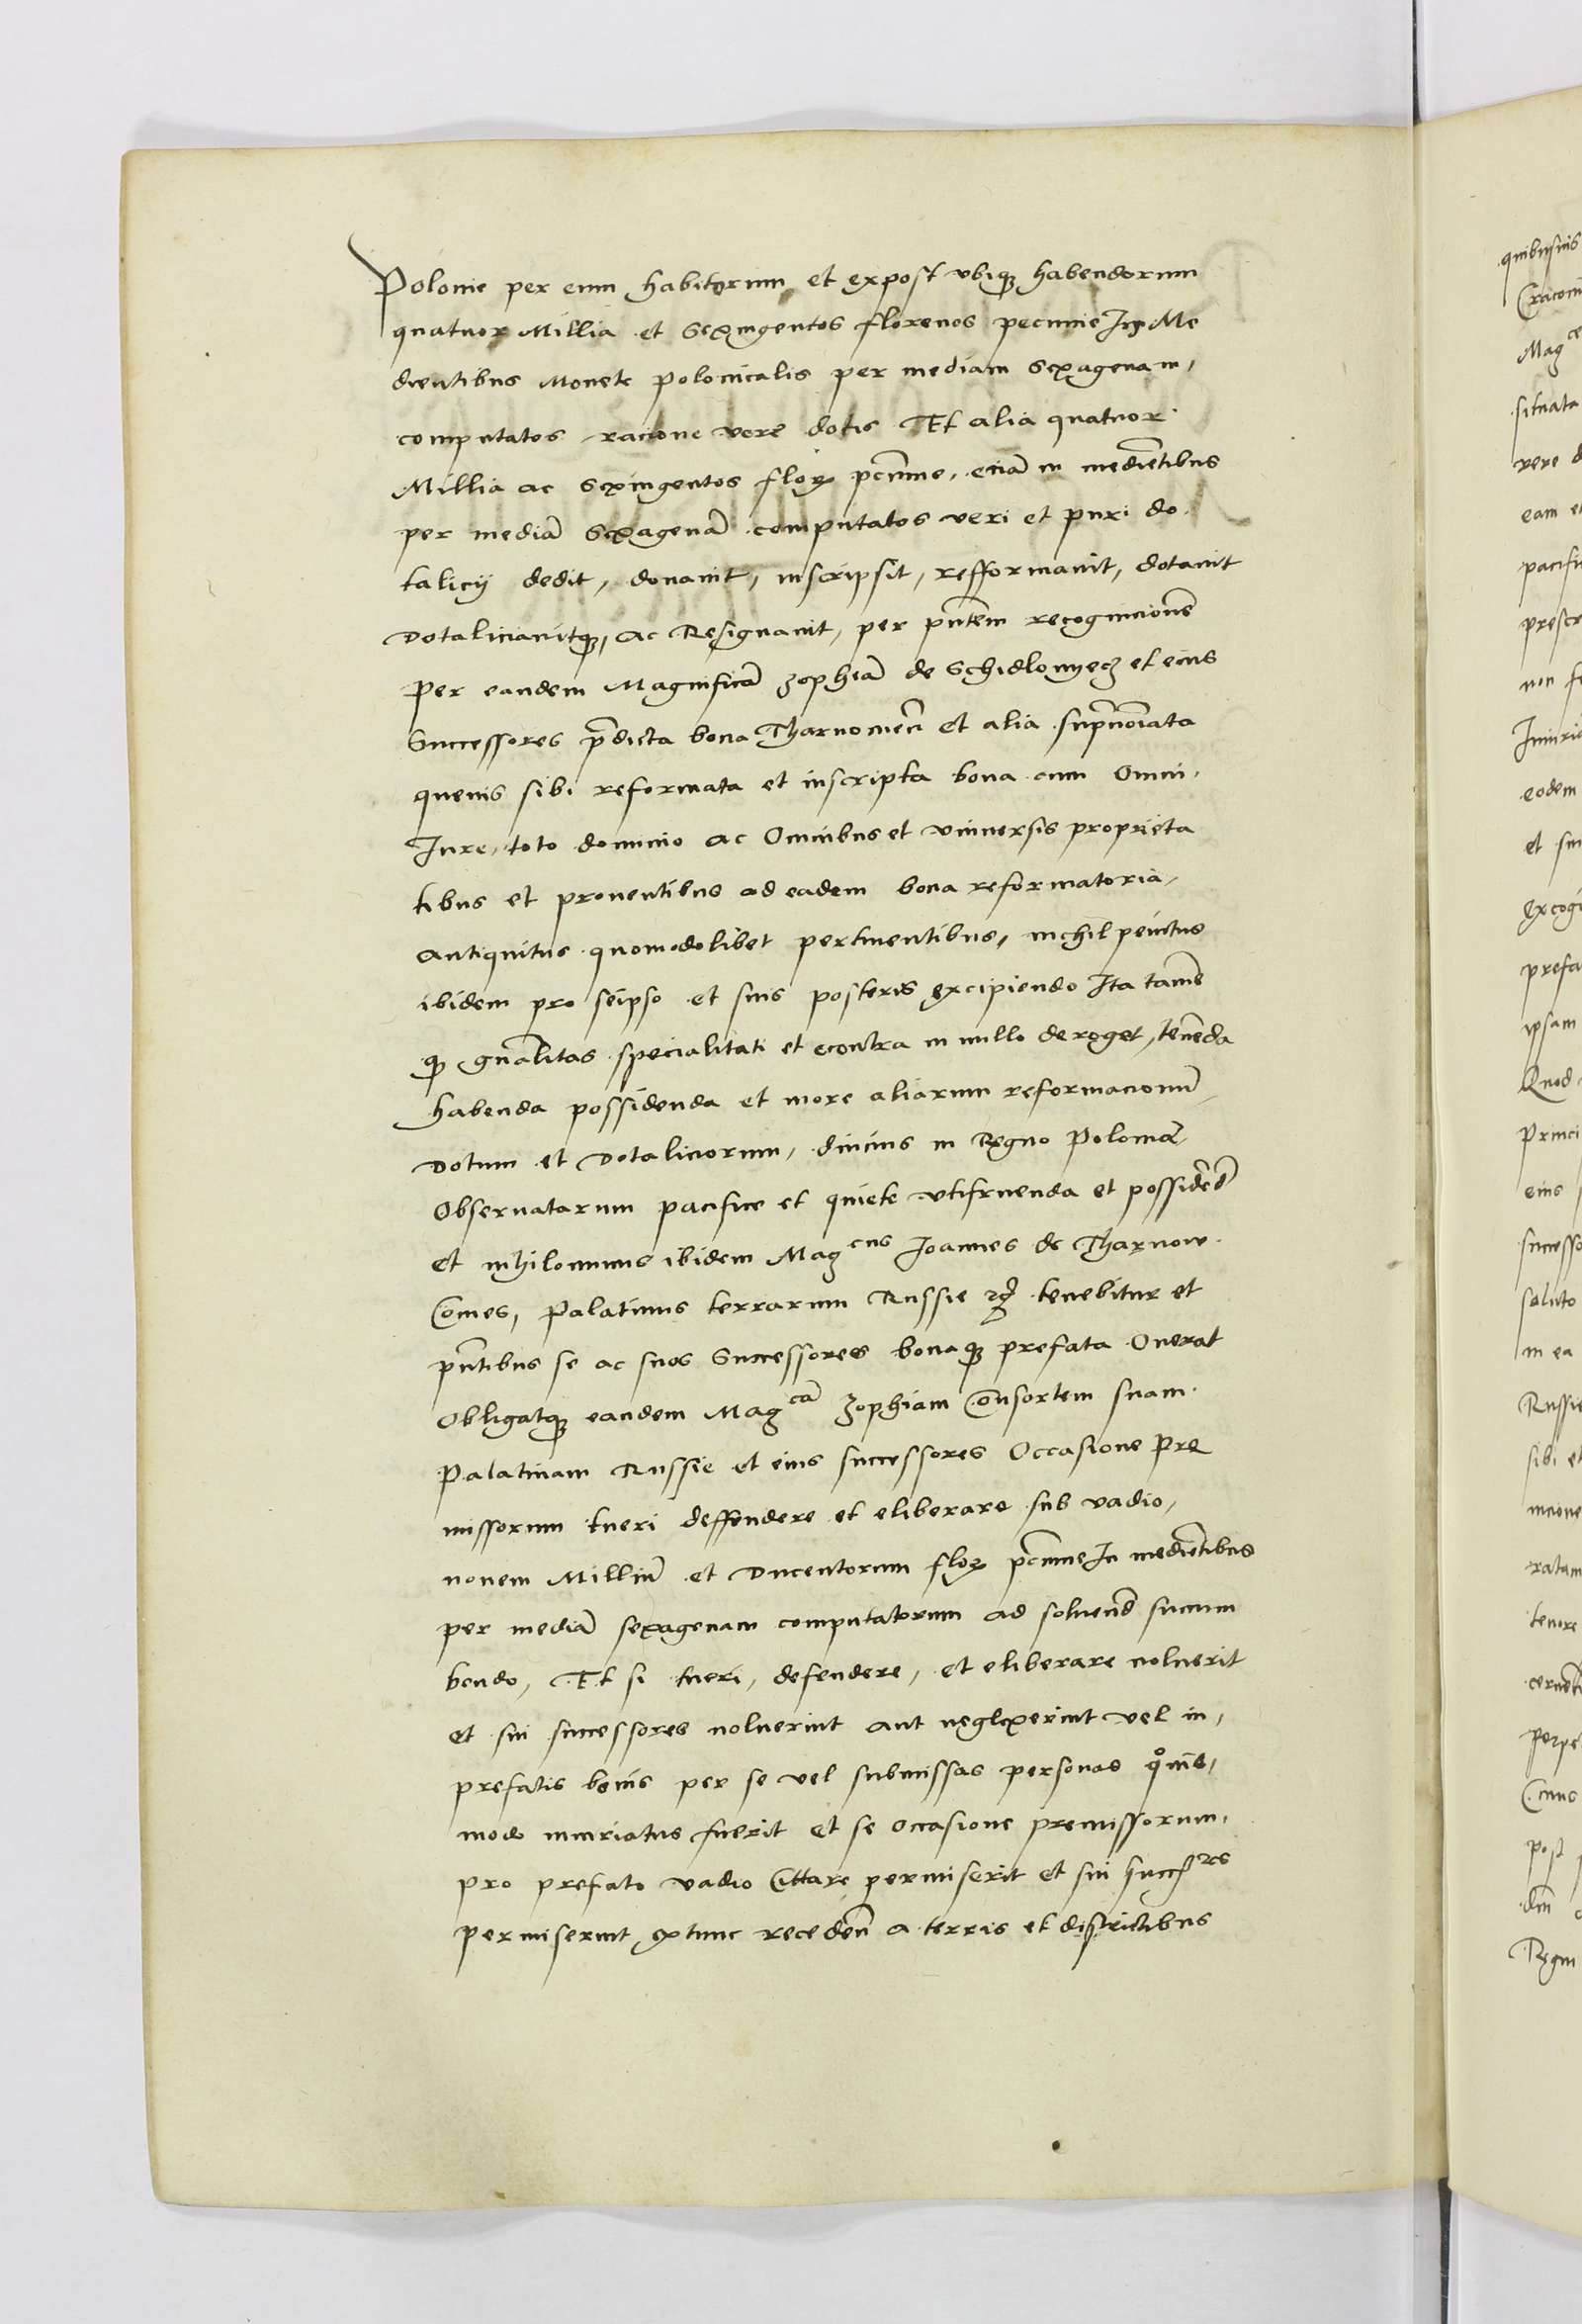 Polonie per eum habitorum et expost vbiq3 habendorum
quatuor Millia et Sexingentos florenos pecunie In Me
dientibus Monete polonicalis per mediam Sexagenam,
computatos racione vere dotis Et alia quatuor
Millia ac Sexingentos flor pcunie, eciā in mediētibus
per mediā Sexagenā computatos veri et puri do
talicij dedit, donauit, inscripsit, refformauit, dotauit
Dotaliciauitq3, ac Resignauit, per pñtem recognicionē
Per eandem Magnificā Zophiā de Schidlowyecz et eius
Successores p̄dicta bona Tharnowień et alia supnoīata
queuis sibi reformata et inscripta bona cum Omni
Jure, toto dominio ac Omnibus et vniuersis proprieta
tibus et prouentibus ad eadem bona reformatoria,
Antiquitus quomodolibet pertinentibus, nichil penitus
ibidem pro seipso et suis posteris excipiendo Ita tamē
q3 gnālitas specialitati et econtra in nullo deroget, tenēda
habenda possidenda et more aliarum reformacionū
Dotum et Dotaliciorum, diucius in Regno Polonie
Obseruatarum pacifice et quiete vtifruenda et possidēd
et nihilominus ibidem Mag cus Joannes de Tharnow
Comes, Palatinus terrarum Russie tenebitur et
pñtibus se ac suos Successores bonaq3 prefata Onerat
Obligatq3 eandem Mag cā Zophiam Consortem suam
Palatinam Russie et eius successores Occasione pre
missorum tueri deffendere et eliberare sub vadio,
nouem Milliū et Ducentorum flor pcunie In mediētibus
per mediā sexagenam computatorum ad soluend succum
bendo, Et si tueri, defendere, et eliberare noluerit
et sui successores noluerint aut neglexerint vel in,
prefatis bonis per se vel submissas personas quouis,
modo iniuriatus fuerit et se occasione premissorum
pro prefato vadio Cittare permiserit et sui succres
permiserint extunc recedeñ a terris et districtibus
quibusuis
Mag ce
situata
vere d
eam et
pacifi
prescr
non f
Iniuria
eodem
et su
excogi
prefa
ipsam
Quod
Princi
eius
successo
soluto
in ea
Russie
sibi et
ratam
tenore
perpe
post
Regni